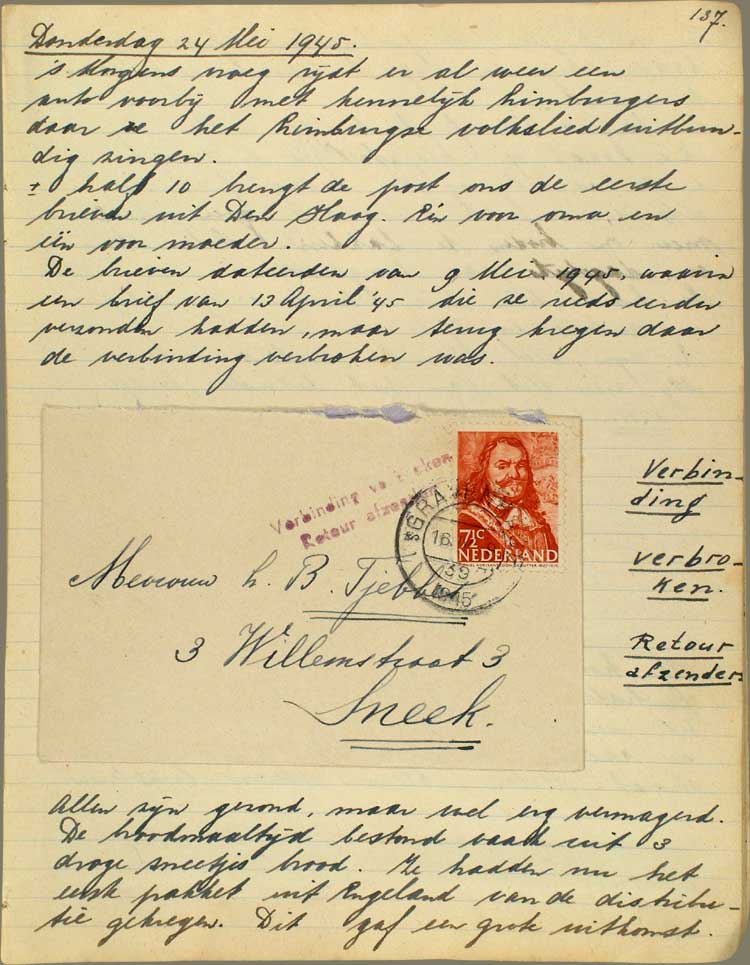 137.
Donderdag 24 Mei 1945.
's Morgens vroeg rijdt er al weer een
auto voorbij met kennelijk Limburgers
daar ze het Limburgse volkslied uitbun-
dig zingen.
± half 10 brengt de post ons de eerste
brieven uit Den Haag. Eén voor oma en
één voor moeder.
De brieven dateerden van 9 Mei 1945, waarin
een brief van 13 April '45 die ze reeds eerder
verzonden hadden, maar terug kregen daar
de verbinding verbroken was.
Verbinding
Retour afzender
'SGRAVENHAGE
16.
1945
7½c
NEDERLAND
Mevrouw h. B.
3 Willemstraat 3
Sneek.
Verbin-
ding
verbro-
ken.
Retour
afzender.
Allen zijn gezond, maar wel erg vermagerd.
De broodmaaltijd bestond vaak uit 3
droge sneetjes brood. Ze hadden nu het
eerste pakket uit Engeland van de distribu-
tie gekregen. Dit gaf een grote uitkomst.